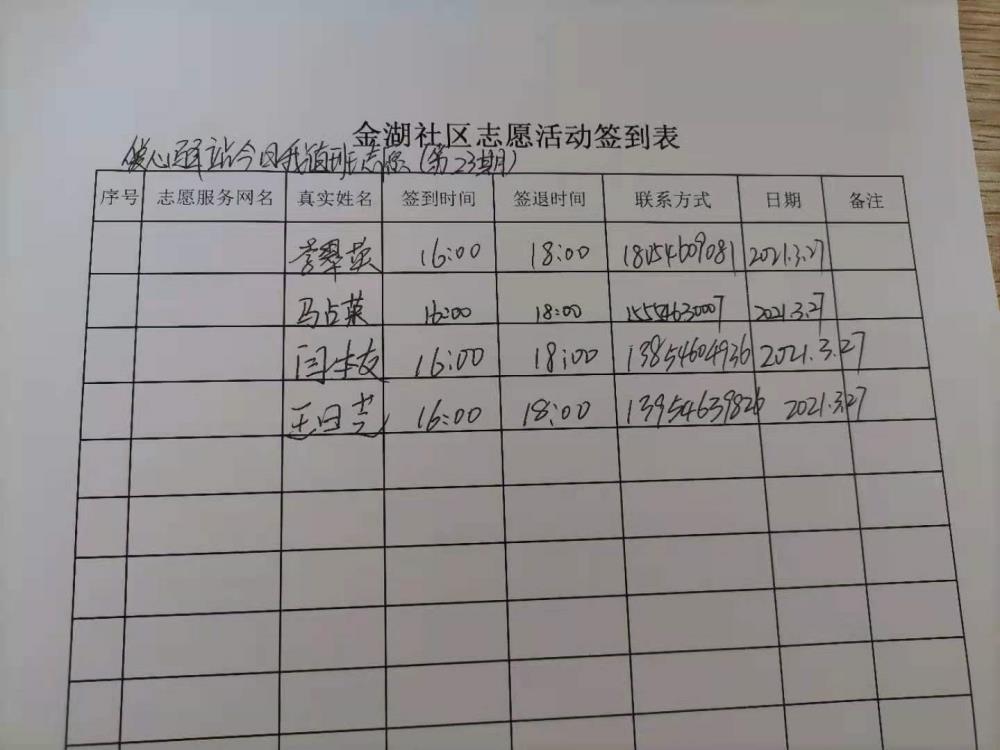 金湖社区志愿活动签到表
心驿站今日我值班志愿(第23期)
序号 志愿服务网名 真实姓名 签到时间 签退时间 联系方式 日期 备注
李翠英 16:00 18:00 18054609081 2021.3.27
马占菜 16:00 18:00 15554630007 2021.3.27
闫本友 16:00 18:00 13854604936 2021.3.27
王曰芝 16:00 18:00 13954639826 2021.3.27